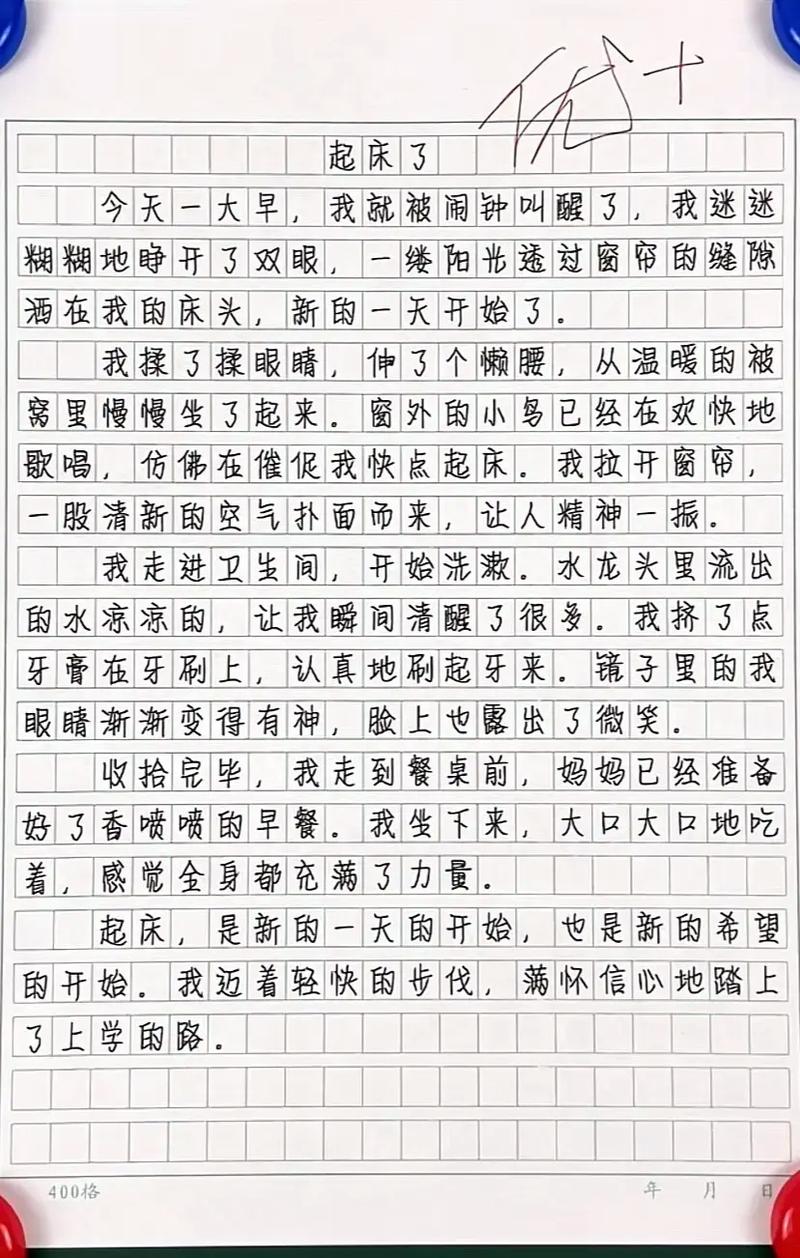 优+
起床了
今天一大早，我就被闹钟叫醒了，我迷迷
糊糊地睁开了双眼，一缕阳光透过窗帘的缝隙
洒在我的床头，新的一天开始了。
我揉了揉眼睛，伸了个懒腰，从温暖的被
窝里慢慢坐了起来。窗外的小鸟已经在欢快地
歌唱，仿佛在催促我快点起床。我拉开窗帘，
一股清新的空气扑面而来，让人精神一振。
我走进卫生间，开始洗漱。水龙头里流出
的水凉凉的，让我瞬间清醒了很多。我挤了点
牙膏在牙刷上，认真地刷起牙来。镜子里的我
眼睛渐渐变得有神，脸上也露出了微笑。
收拾完毕，我走到餐桌前，妈妈已经准备
好了香喷喷的早餐。我坐下来，大口大口地吃
着，感觉全身都充满了力量。
起床，是新的一天的开始，也是新的希望
的开始。我迈着轻快的步伐，满怀信心地踏上
了上学的路。
400格 年 月 日